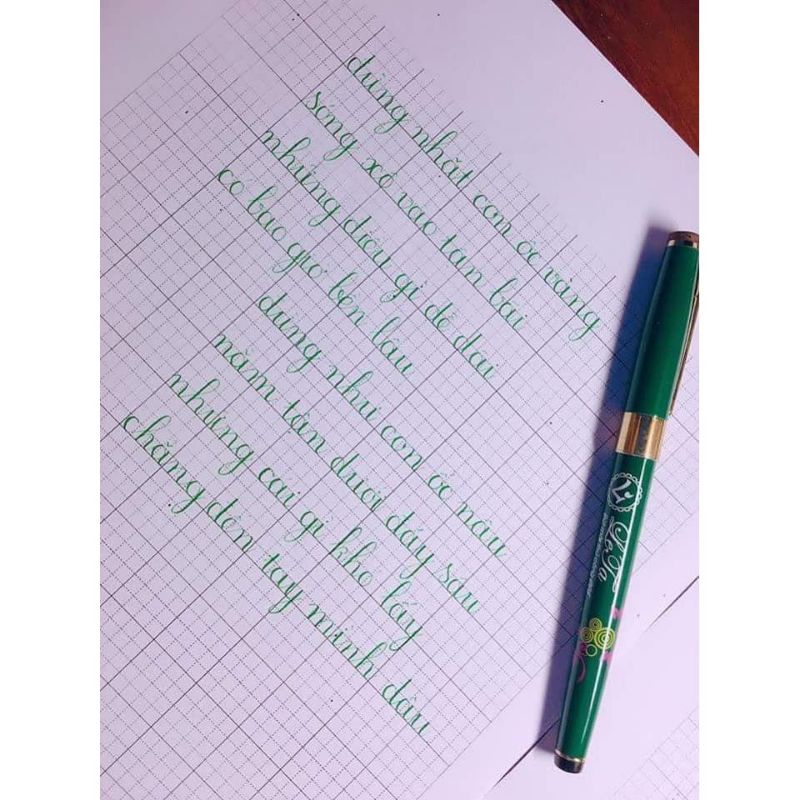 đừng nhặt con ốc vàng
sóng xô vào tận bãi
những điều gì dễ dãi
có bao giờ bền lâu
đừng như con ốc nâu
nằm tận dưới đáy sâu
những cái gì khó lấy
chẳng đến tay mình đâu
LeTa